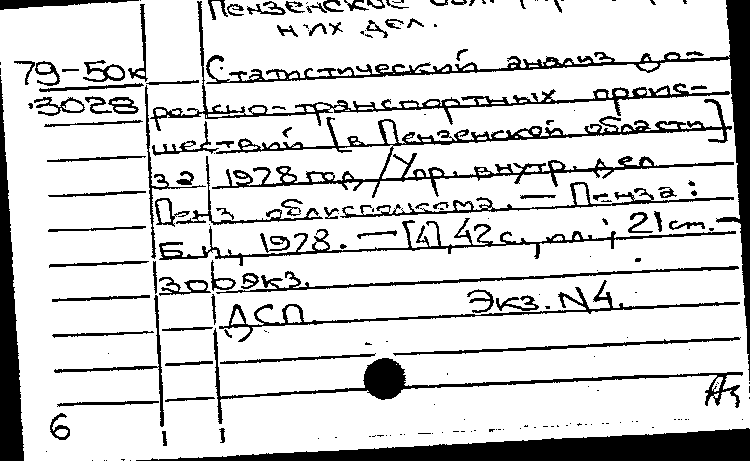 Пензенское
них дел.
79-50к Статистический анализ до-
3028 рожно-транспортных проис-
шествий [в Пензенской области]
за 1978 год / Упр. внутр. дел
Пенз облисполкома. — Пенза:
Б.и., 1978. — [4], 42 с., ил.; 21 ст. —
300 экз.
ДСП. Экз. N4.
6